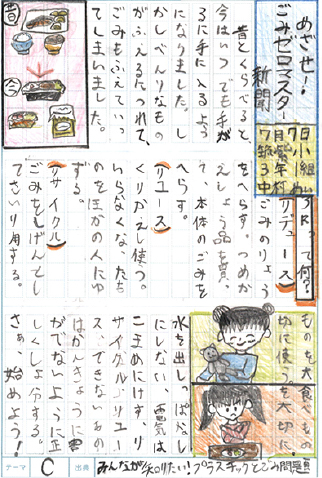 めざせ！
ごみゼロマスター
新聞
昔とくらべると
今はいつでも手が
るに手に入るよう
になりました。し
かしべんりなもの
がふえるにつれて、
ごみもふえていっ
てしまいました。
昔
今
3Rって何？
リデュース
ごみのりょう
をへらす。つめか
えしょう品を買い、
て、本体のごみを
へらす。
リユース
くりかえし使う。
いらなくな、たも
のをほかの人にゆ
ずる。
リサイクル
ごみをしげんとし
てさいり用する。
ものを大
切に使う。
食べもの
を大切に。
水を出しっぱなし
にしない。電気は
こまめにけす。リ
サイクル、リユー
ス、できないもの
はかんきょうに害
がでないように正
しくしょ分する。
さあ、始めよう！
テーマ C 出典 みんなが知りたい！プラスチックとごみ問題